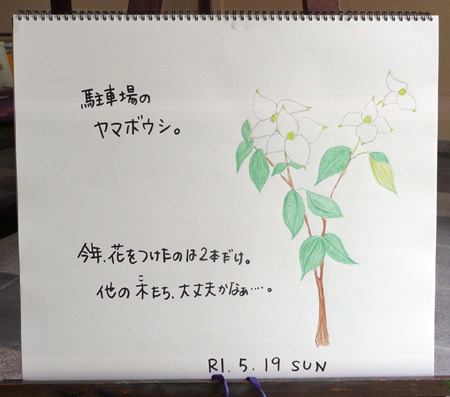 駐車場の
ヤマボウシ。
今年、花をつけたのは2本だけ。
こ
他の木たち、大丈夫かなぁ‥‥。
R1.5.19 SUN